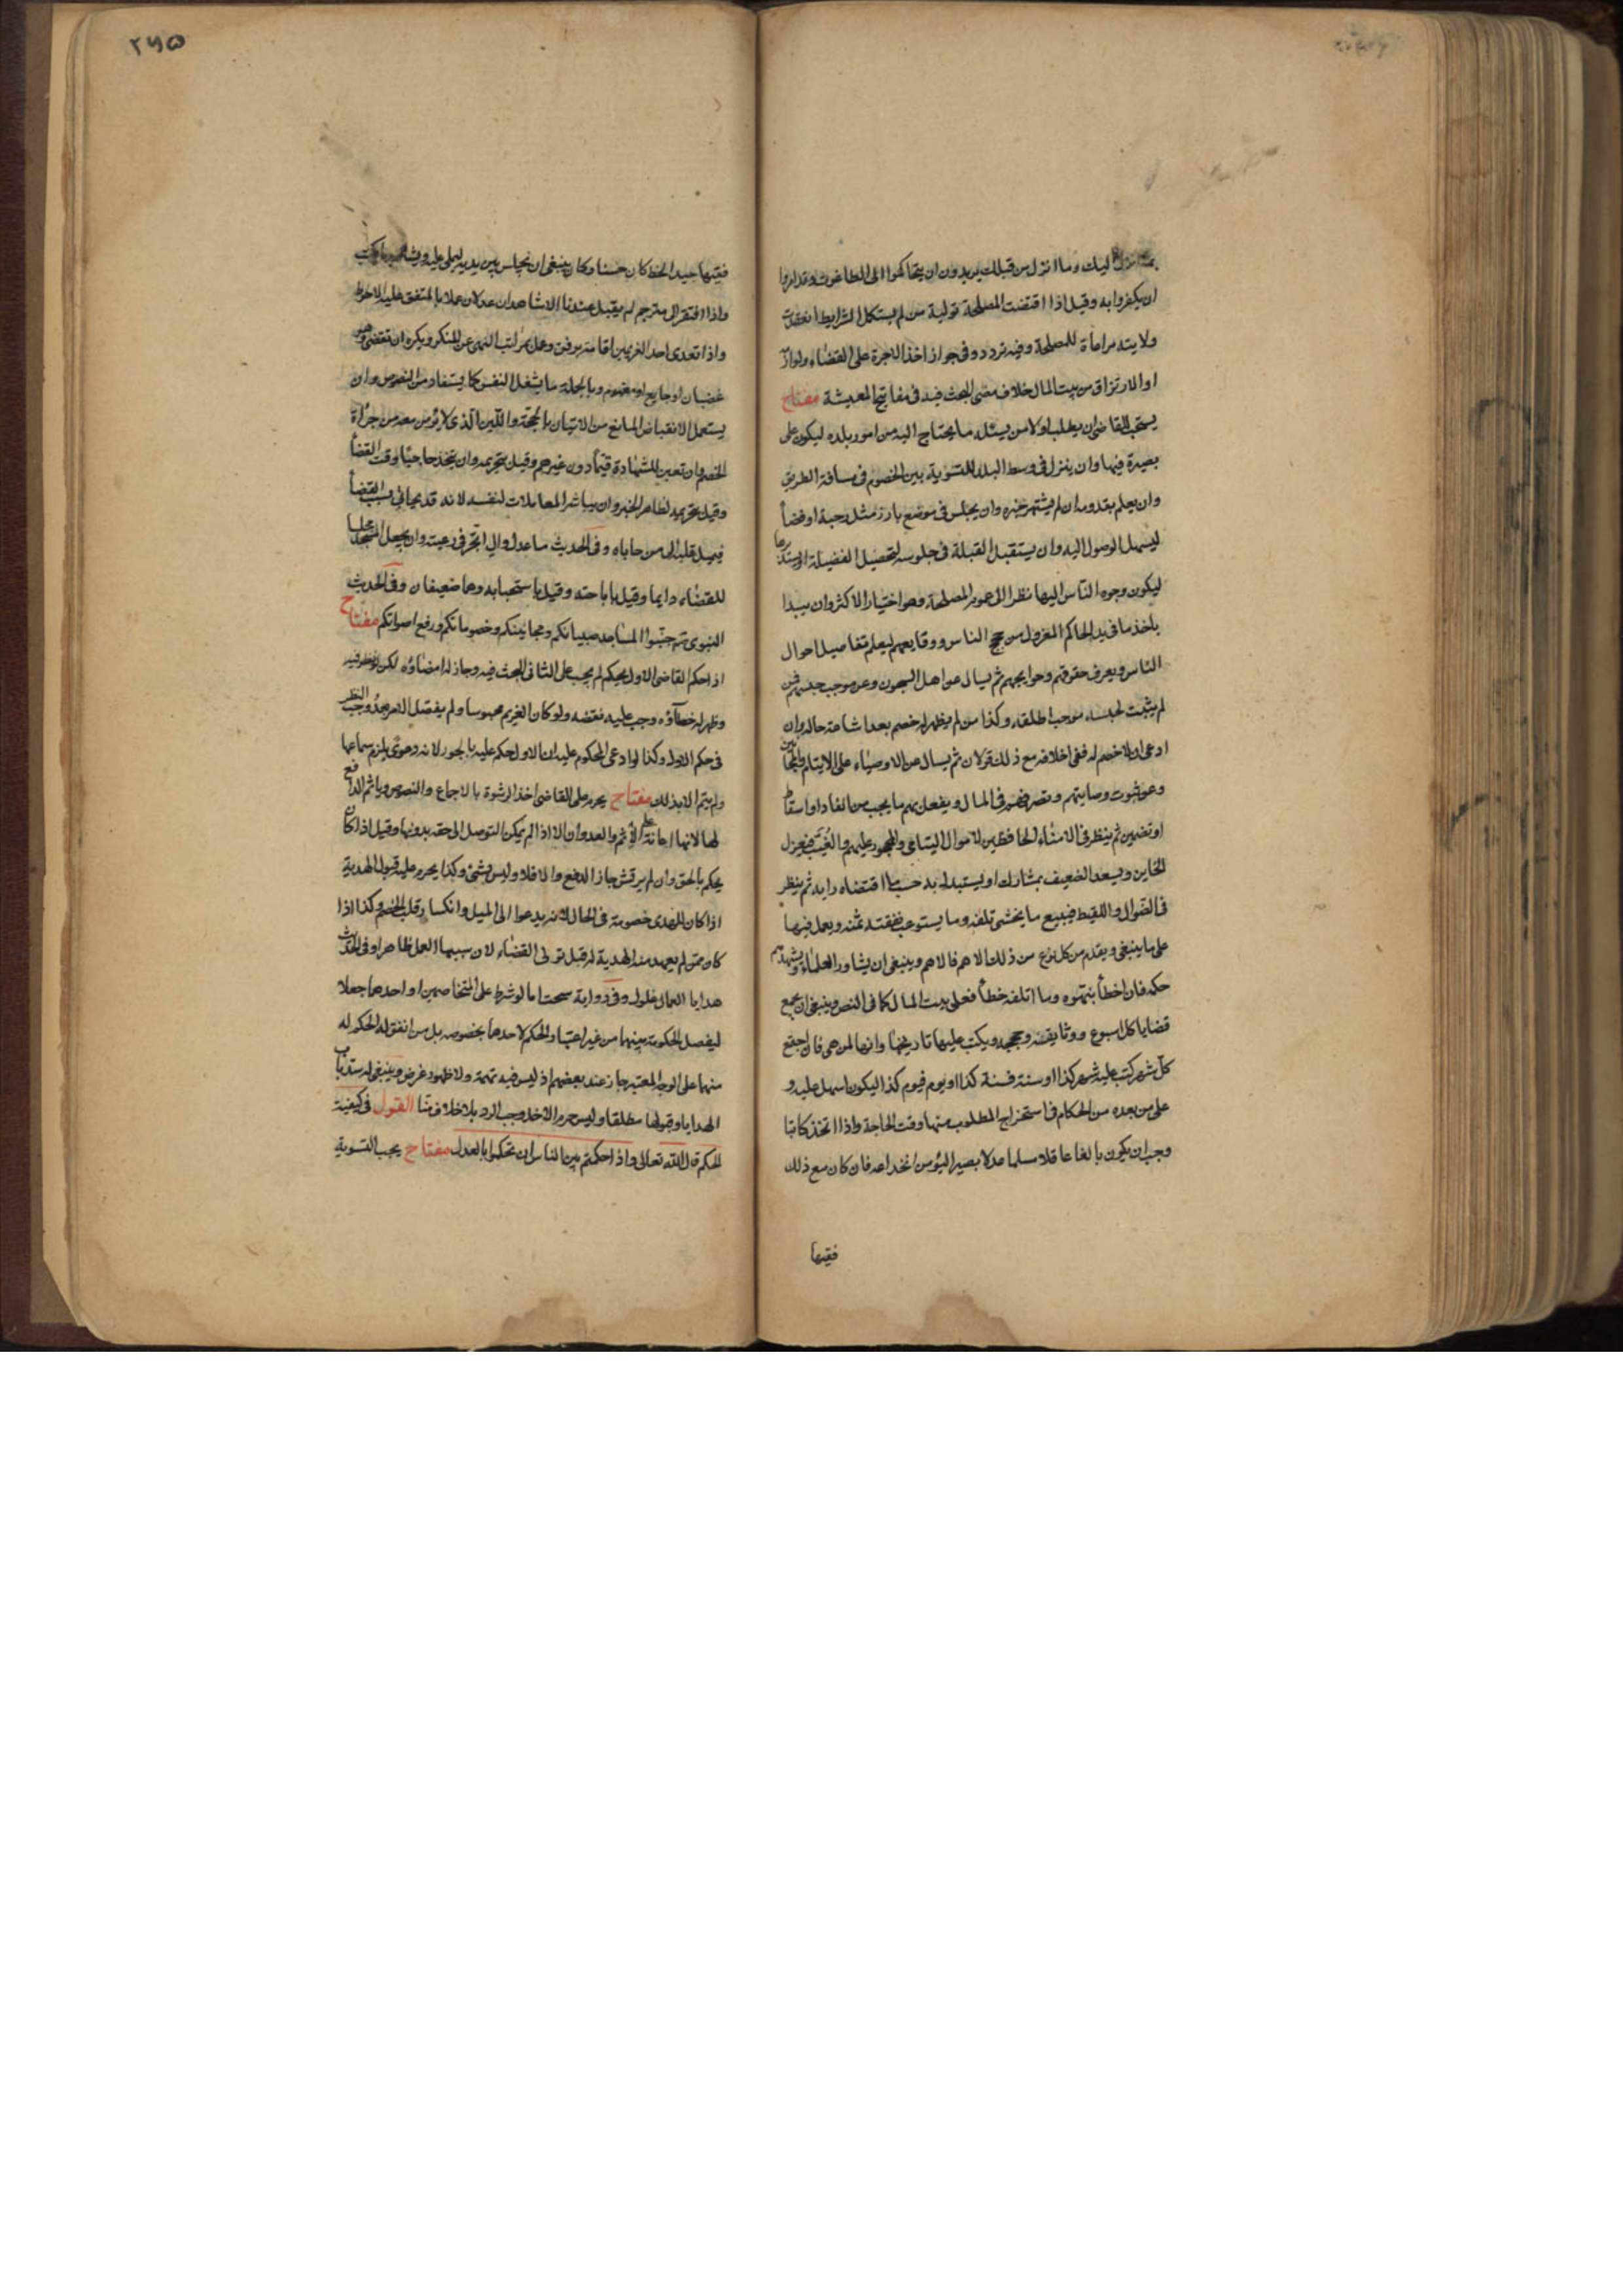 اليك وما انزل من قبلك يريدون ان يتحاكموا الى الطاغوت وقد امروا
ان يكفروا به وقيل اذا اقتضت المصلحة تولية من لم يستكمل الشرايط انعقدت
ولايته مراعاة للمصلحة وفيه تردد وفى جواز اخذ الاجرة على القضاء ولوازمه
او الارتزاق من بيت المال خلاف مضى البحث فيه فى مفاتيح المعيشة مفتاح
يستحب للقاضى ان يطلب اولا من يسئله ما يحتاج اليه من امور بلده ليكون على
بصيرة فيها وان ينزل فى وسط البلد للتسوية بين الخصوم فى مسافة الطريق
وان يعلم بقدومه ان لم يشتهر خبره وان يجلس فى موضع بارز مثل رحبة او فضاء
ليسهل الوصول اليه وان يستقبل القبلة فى جلوسه لتحصيل الفضيلة او يستدبرها
ليكون وجوه الناس اليها نظرا الى عموم المصلحة وهو اختيار الاكثر وان يبدا
باخذ ما فى يد الحاكم المعزول من حجج الناس ووقايعهم ليعلم تفاصيل احوال
الناس ويعرف حقوقهم وحوايجهم ثم يسال عن اهل السجون وعن موجب حبسهم فمن
لم يثبت لحبسه موجب اطلقه وكذا من لم يظهر له خصم بعد اشاعة حاله وان
ادعى ان لا خصم له ففى احلافه مع ذلك قولان ثم يسال عن الاوصياء على الايتام والمجانين
وعن ثبوت وصايتهم وتصرفهم فى المال ويفعل بهم ما يجب من انفاد او اسقاط
او تضمين ثم ينظر فى الامناء الحافظين لاموال اليتامى والمحجور عليهم والغيب فيعزل
الخاين ويسعد الضعيف بمشارك او يستبدل به حسب ما اقتضاه رايه ثم ينظر
فى الضوال واللقيط فيبيع ما يخشى تلفه وما يستوعب نفقته ثمنه ويعمل فيها
على ما ينبغى ويقدم من كل نوع من ذلك الاهم فالاهم وينبغى ان يشاور العلماء ويشهدهم
حكمه فان اخطأ ينبهوه وما اتلفه خطأ فعلى بيت المال كما فى النص وينبغى ان يجمع
قضايا كل اسبوع ووثايقه وحججه ويكتب عليها تاريخها وانها لمن هى فان اجتمع
كل شهر كتب عليه شهر كذا او سنة فسنة كذا او يوم فيوم كذا ليكون اسهل عليه و
على من بعده من الحكام فى استخراج المطلوب منها وقت الحاجة واذا اتخذ كاتبا
وجب ان يكون بالغا عاقلا مسلما عدلا بصيرا ليؤمن انخداعه فان كان مع ذلك
فقيها
٢٧٥
فقيها جيد الخط كان حسنا وكان ينبغى ان يجلس بين يديه ليملى عليه ويشاهد ما يكتب
واذا افتقر الى مترجم لم يقبل عندنا الا شاهدان عدلان عملا بالمتفق عليه الاحوط
واذا تعدى احد الغريمين اقامته برفق وعمل بمراتب النهى عن المنكر ويكره ان يقضى وهو
غضبان او جايع او مغموم وبالجملة ما يشغل النفس كما يستفاد من النصوص وان
يستعمل الانقباض المانع من الاتيان بالحجة واللين الذى لا يؤمن معه من جرأة
الخصم وان تعين للشهادة قوما دون غيرهم وقيل بتحريمه وان يتخذ حاجبا وقت القضاء
وقيل بتحريمه لظاهر الخبر وان يباشر المعاملات لنفسه لانه قد يحابى بسبب القضاء
فيميل قلبه الى من حاباه وفى الحديث ما عدل وال اتجر فى رعيته وان يجعل المسجد مجلسا
للقضاء دايما وقيل باباحته وقيل باستحبابه وهما ضعيفان وفى الحديث
النبوى جنبوا المساجد صبيانكم ومجانينكم وخصوماتكم ورفع اصواتكم مفتاح
اذا حكم القاضى الاول بحكم لم يجب على الثانى البحث فيه وجاز له امضاؤه لكن لو نظر فيه
وظهر له خطاؤه وجب عليه نقضه ولو كان الغريم محبوسا ولم يفصل الامر بعد وجب النظر
فى حكم الاول وكذا لو ادعى المحكوم عليه ان الاول حكم عليه بالجور لانه دعوى يلزم سماعها
ولم يتم الا بذلك مفتاح يحرم على القاضى اخذ الرشوة بالاجماع والنصوص وياثم الدافع
لها لانها اعانة على الاثم والعدوان الا اذا لم يمكن التوصل الى حقه بدونها وقيل اذا كان
يحكم بالحق وان لم يرتش جاز الدفع والا فلا وليس بشئ وكذا يحرم عليه قبول الهدية
اذا كان للمهدى خصومة فى الحال لانه يدعوا الى الميل وانكسار قلب الخصم وكذا اذا
كان ممن لم يعهد منه الهدية له قبل تولى القضاء لان سببها العمل ظاهرا وفى الحديث
هدايا العمال غلول وفى رواية سحت اما لو شرط على المتخاصمين او احدهما جعلا
ليفصل الحكومة بينهما من غير اعتبار الحكم لاحدهما بخصوصه بل من اتفق له الحكم له
منهما على الوجه المعتبر جاز عند بعضهم اذ ليس فيه تهمة ولا ظهور غرض وينبغى له سد باب
الهدايا وقبولها مطلقا وليس حرم الاخذ وجب الرد بلا خلاف منا القول فى كيفية
الحكم قال الله تعالى واذا حكمتم بين الناس ان تحكموا بالعدل مفتاح يجب التسوية